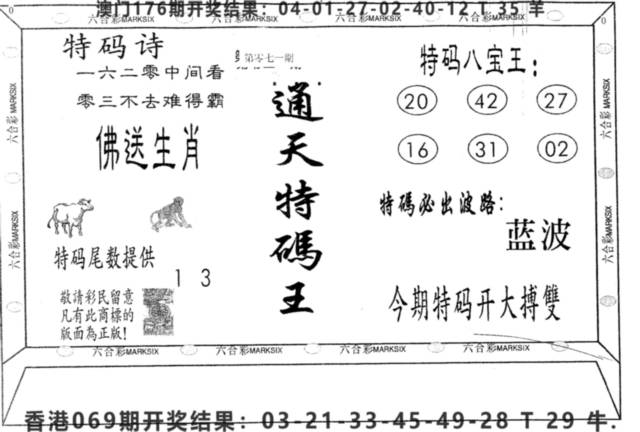 澳门176期开奖结果：04-01-27-02-40-12 T 35 羊
六合彩MARKSIX 六合彩MARKSIX 六合彩MARKSIX 六合彩MARKSIX
特码诗
一六二零中间看
零三不去难得霸
佛送生肖
特码尾数提供
1 3
敬請彩民留意
凡有此商標的
版面為正版！
第零七一期
通天特碼王
特码八宝王：
20 42 27
16 31 02
特碼必出波路：
蓝波
今期特码开大搏雙
六合彩MARKSIX 六合彩MARKSIX 六合彩MARKSIX 六合彩MARKSIX
香港069期开奖结果：03-21-33-45-49-28 T 29 牛.